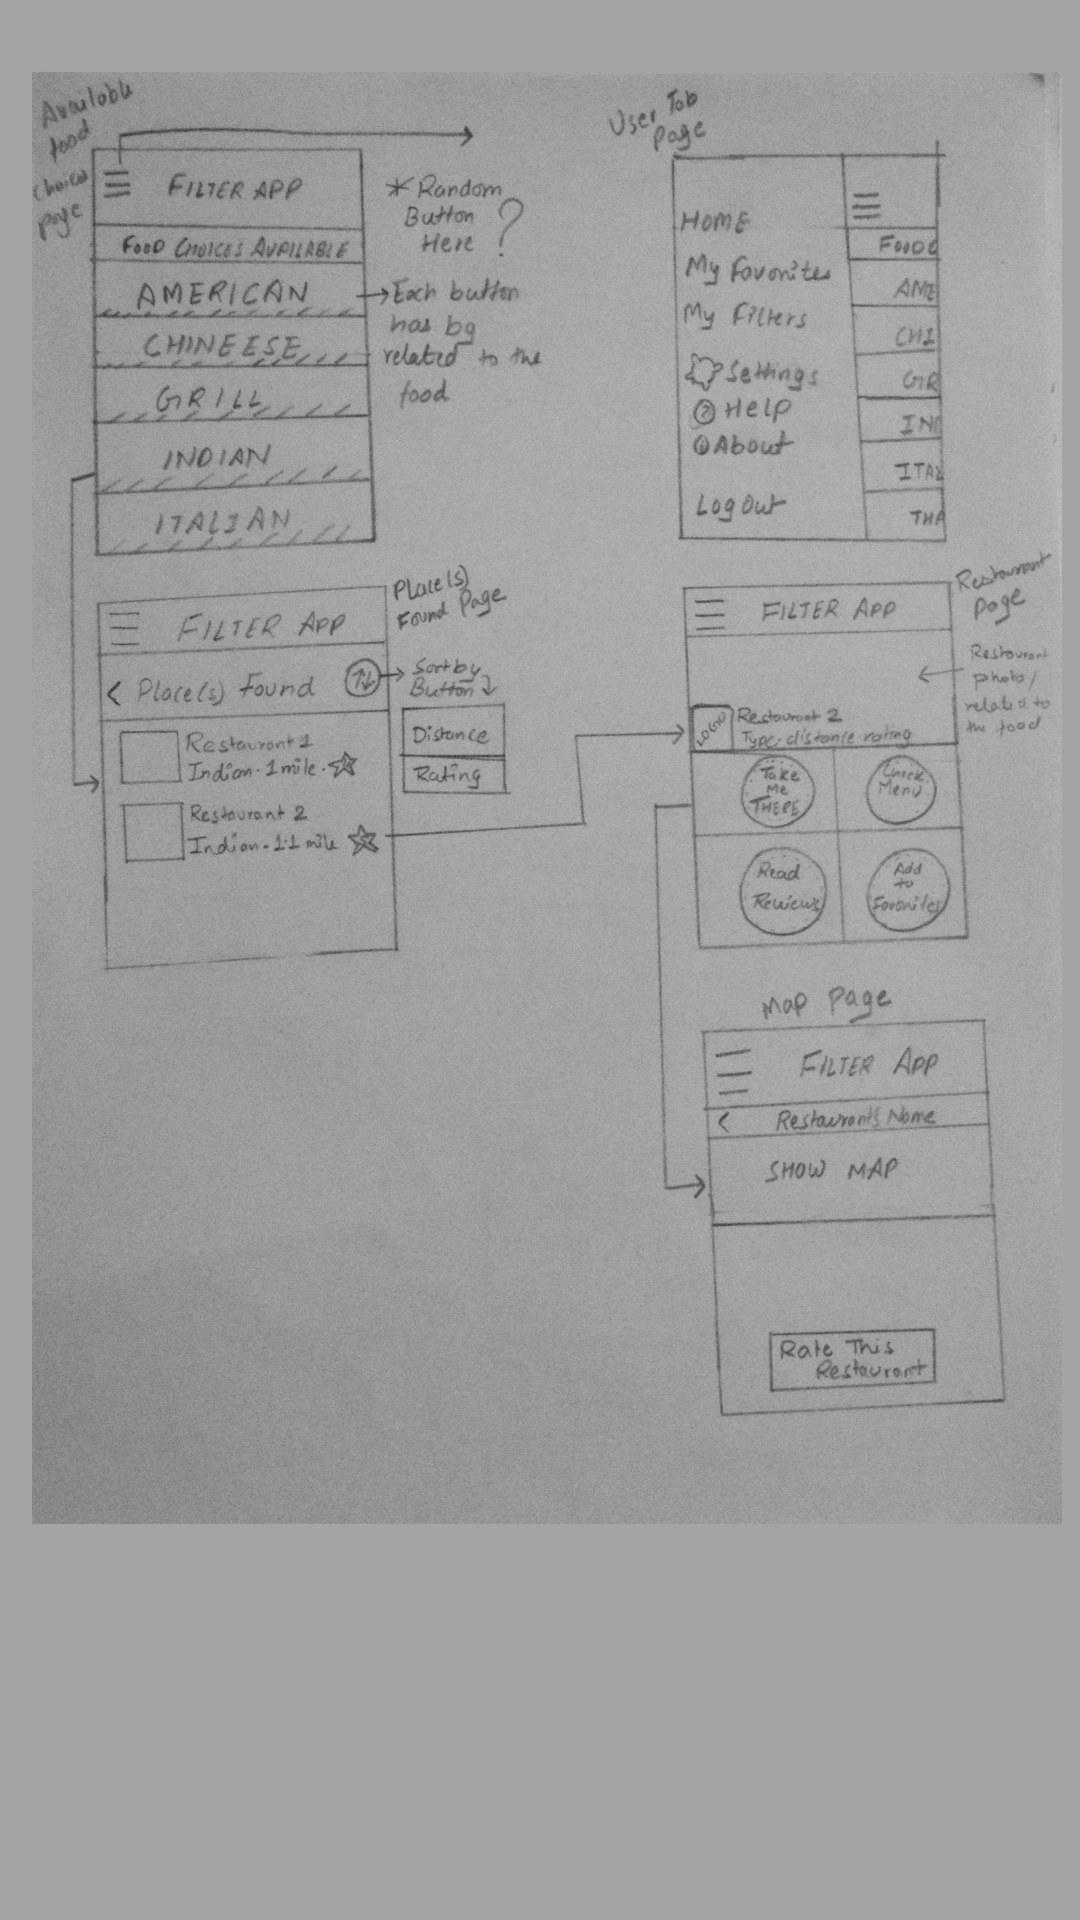 Available
food
choices
page
FILTER APP
FOOD CHOICES AVAILABLE
AMERICAN
CHINEESE
GRILL
INDIAN
ITALIAN
* Random
Button
Here ?
Each button
has bg
related to the
food
User Tab
Page
HOME
My Favorites
My Filters
Settings
? Help
i About
Log Out
FOOD C
AME
CHI
GR
IND
ITAL
THA
Place(s)
Found Page
FILTER APP
< Place(s) Found
Sort by
Button
Distance
Rating
Restaurant 1
Indian · 1 mile ·
Restaurant 2
Indian · 1.1 mile
Restaurant
Page
FILTER APP
Restaurant
photo/
related to
the food
LOGO
Restaurant 2
Type · distance rating
Take
Me
THERE
Menu
Read
Reviews
Add
to
Favorites
Map Page
FILTER APP
< Restaurant's Name
SHOW MAP
Rate This
Restaurant